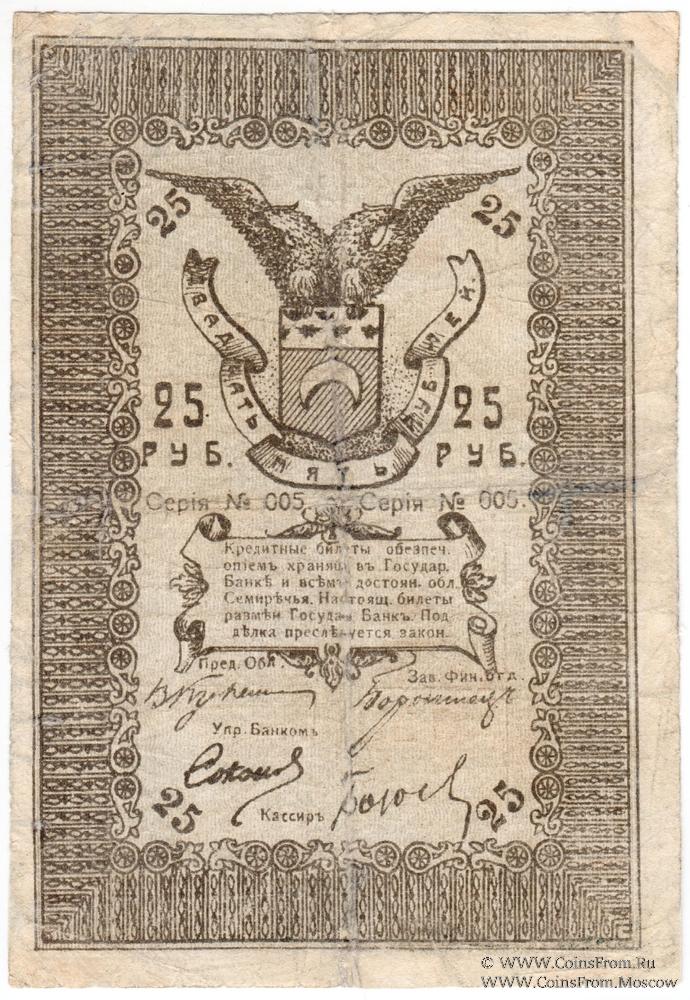 25 25
ДВАДЦАТЬ ПЯТЬ РУБЛЕЙ.
25 25
РУБ. РУБ.
Серія № 005 Серія № 005.
Кредитные билеты обезпеч.
опіемъ храня въ Государ.
Банкѣ и всѣмъ достоян. обл.
Семирѣчья. Настоящ. билеты
размѣн Госуда Банкъ. Под
дѣлка преслѣдуется закон.
Пред. Обл.
Зав. Фин. отд.
Упр. Банкомъ
Соколов
Кассиръ
25 25
© WWW.CoinsFrom.Ru
WWW.CoinsFrom.Moscow